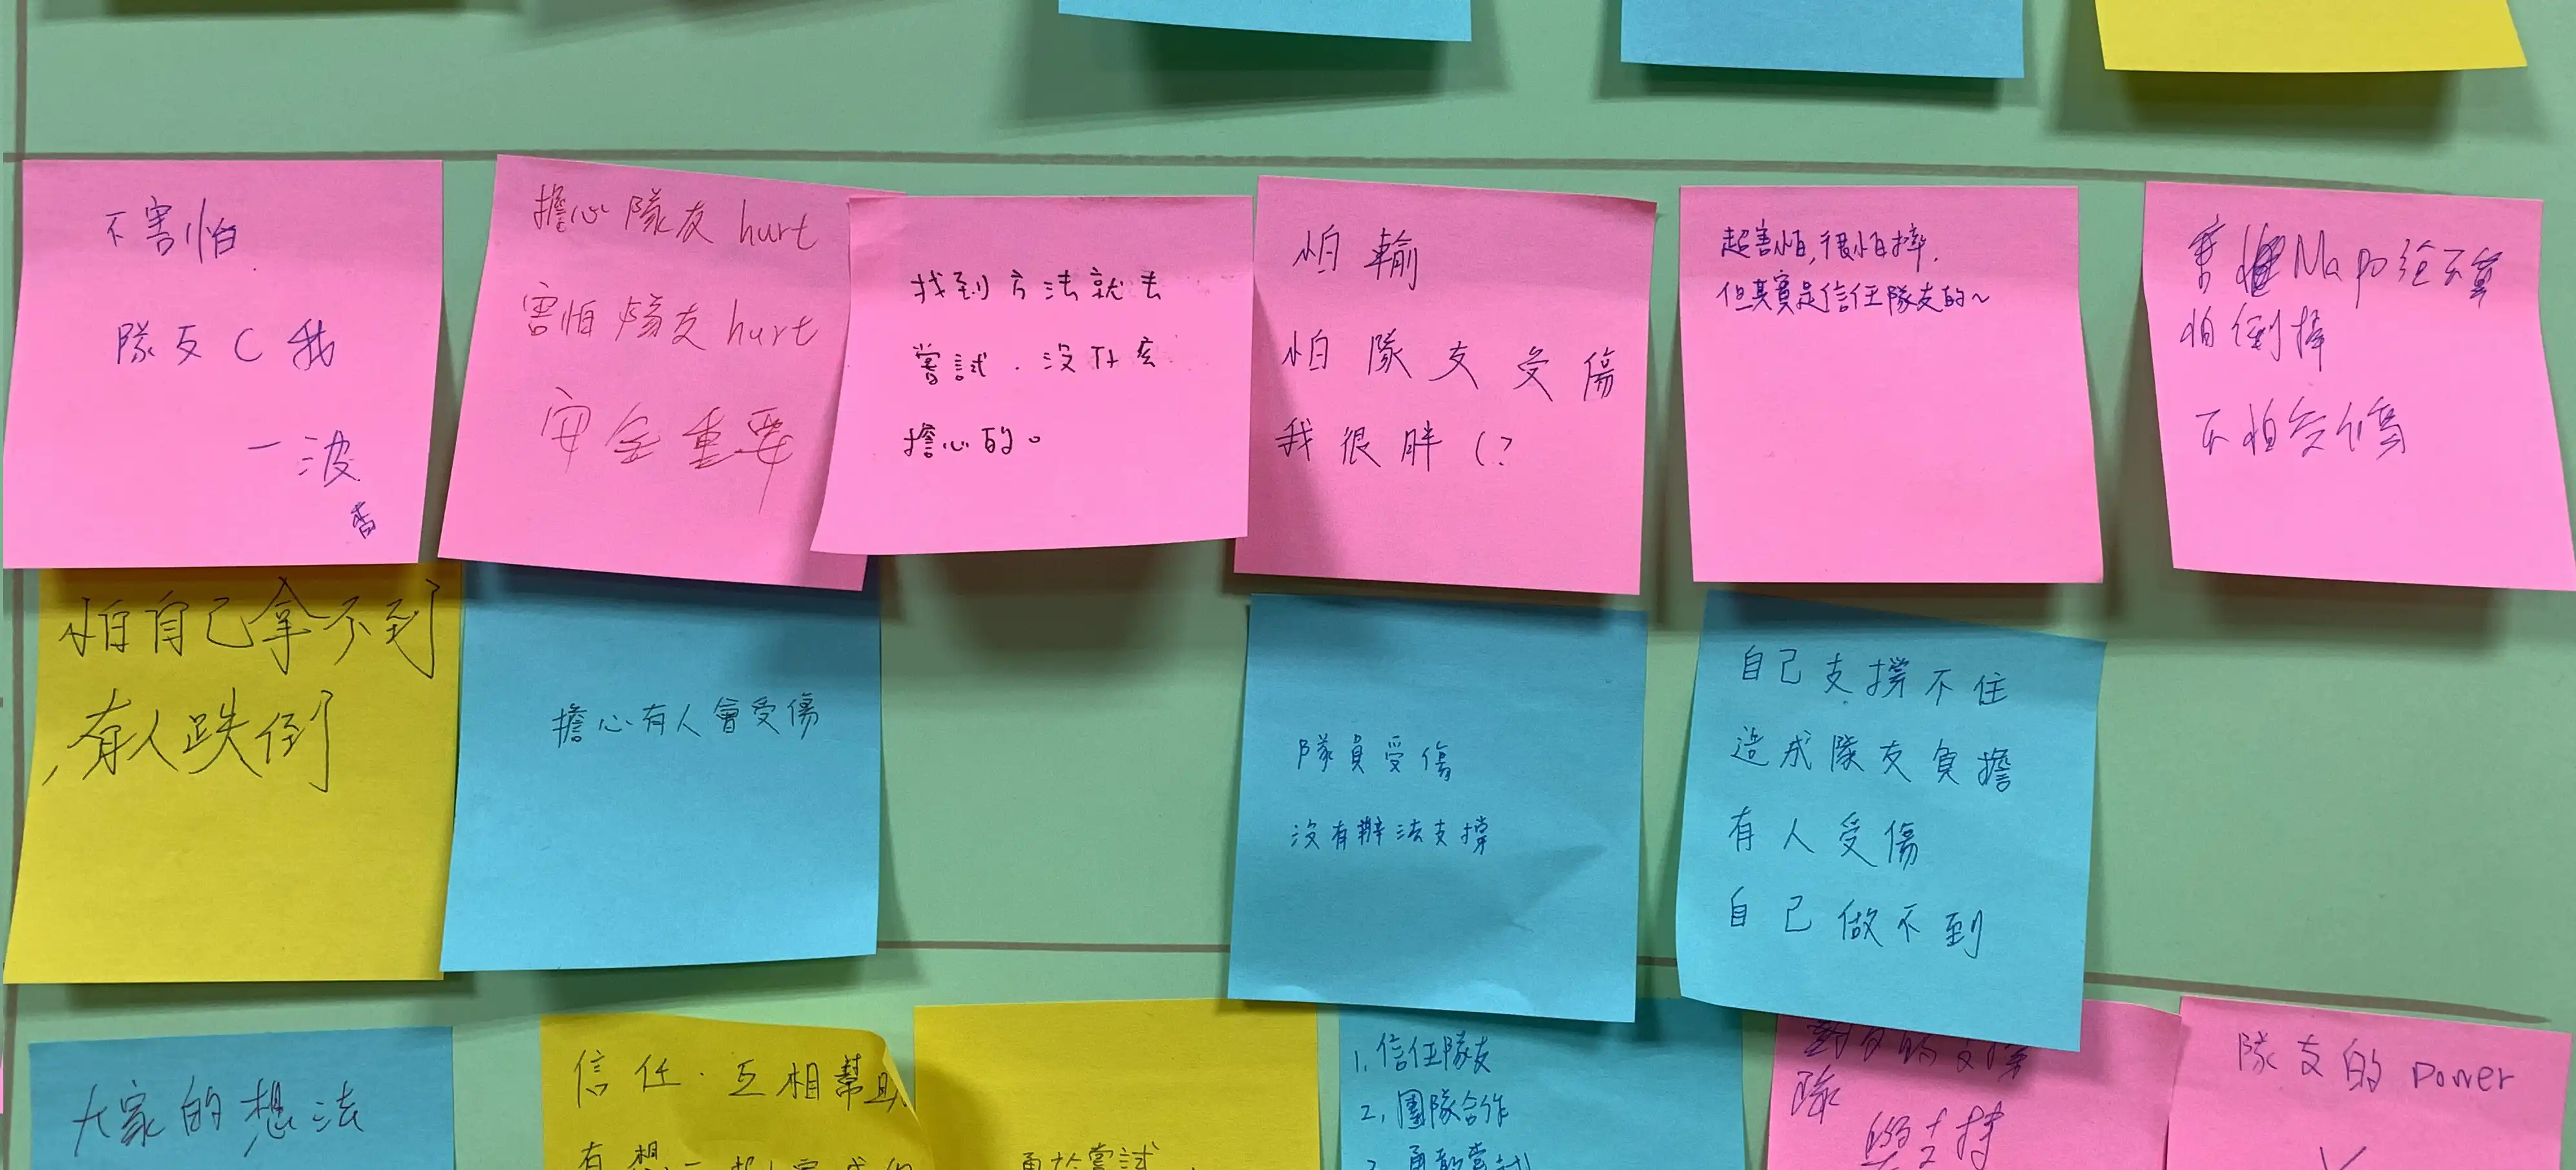 不害怕
隊友 C 我
一波
擔心隊友 hurt
害怕隊友 hurt
安全重要
找到方法就去
嘗試．没什麼
擔心的。
怕輸
怕隊友受傷
我很胖 (?
超害怕, 很怕摔,
但其實是信任隊友的~
怕倒掉
不怕受傷
怕自己拿不到
有人跌倒
擔心有人會受傷
隊員受傷
沒有辦法支撐
自己支撐不住
造成隊友負擔
有人受傷
自己做不到
大家的想法
信任．互相幫助
勇於嘗試
1. 信任隊友
2. 團隊合作
勇敢嘗試
隊
隊友的 power